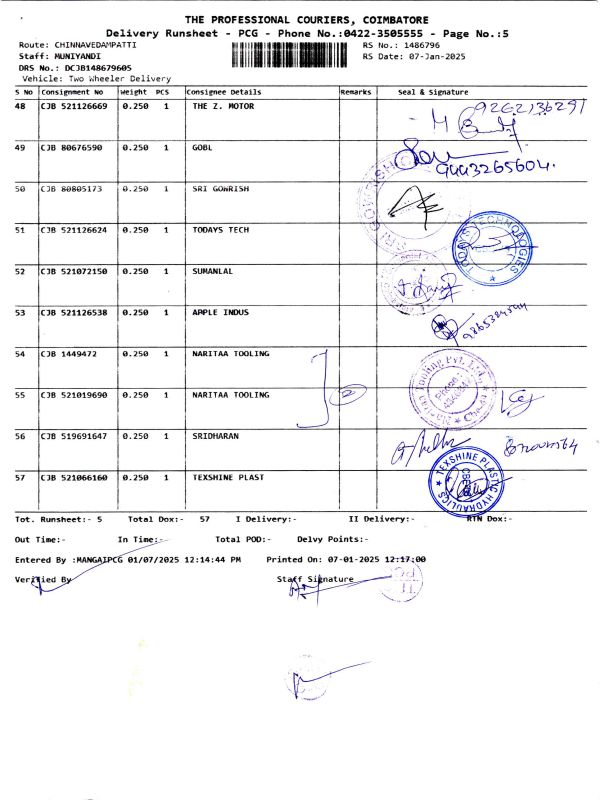 THE PROFESSIONAL COURIERS, COIMBATORE
Delivery Runsheet - PCG - Phone No.:0422-3505555 - Page No.:5
Route: CHINNAVEDAMPATTI RS No.: 1486796
Staff: MUNIYANDI RS Date: 07-Jan-2025
DRS No.: DCJB148679605
Vehicle: Two Wheeler Delivery
S No Consignment No Weight PCS Consignee Details Remarks Seal & Signature
48 CJB 521126669 0.250 1 THE Z. MOTOR 9262136291
49 CJB 80676590 0.250 1 GOBL 9443265604.
50 CJB 80805173 0.250 1 SRI GOWRISH
51 CJB 521126624 0.250 1 TODAYS TECH TODAYS TECHNOLOGIES
52 CJB 521072150 0.250 1 SUMANLAL
53 CJB 521126538 0.250 1 APPLE INDUS
54 CJB 1449472 0.250 1 NARITAA TOOLING
55 CJB 521019690 0.250 1 NARITAA TOOLING 2
56 CJB 519691647 0.250 1 SRIDHARAN
57 CJB 521066160 0.250 1 TEXSHINE PLAST TEXSHINE PLASTIC HYDRAULICS
Tot. Runsheet:- 5 Total Dox:- 57 I Delivery:- II Delivery:- RTN Dox:-
Out Time:- In Time:- Total POD:- Delvy Points:-
Entered By :MANGAIPCG 01/07/2025 12:14:44 PM Printed On: 07-01-2025 12:17:00
Verified By Staff Signature